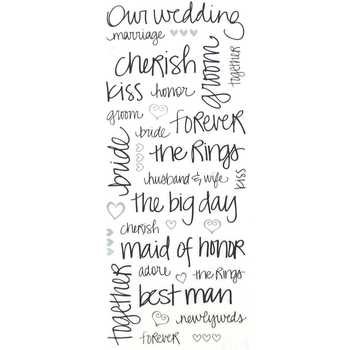 Our wedding
marriage
cherish
groom
together
kiss
honor
groom
bride
forever
bride
the Rings
husband & wife
kiss
the big day
cherish
maid of honor
together
adore
the Rings
best man
newlyweds
forever